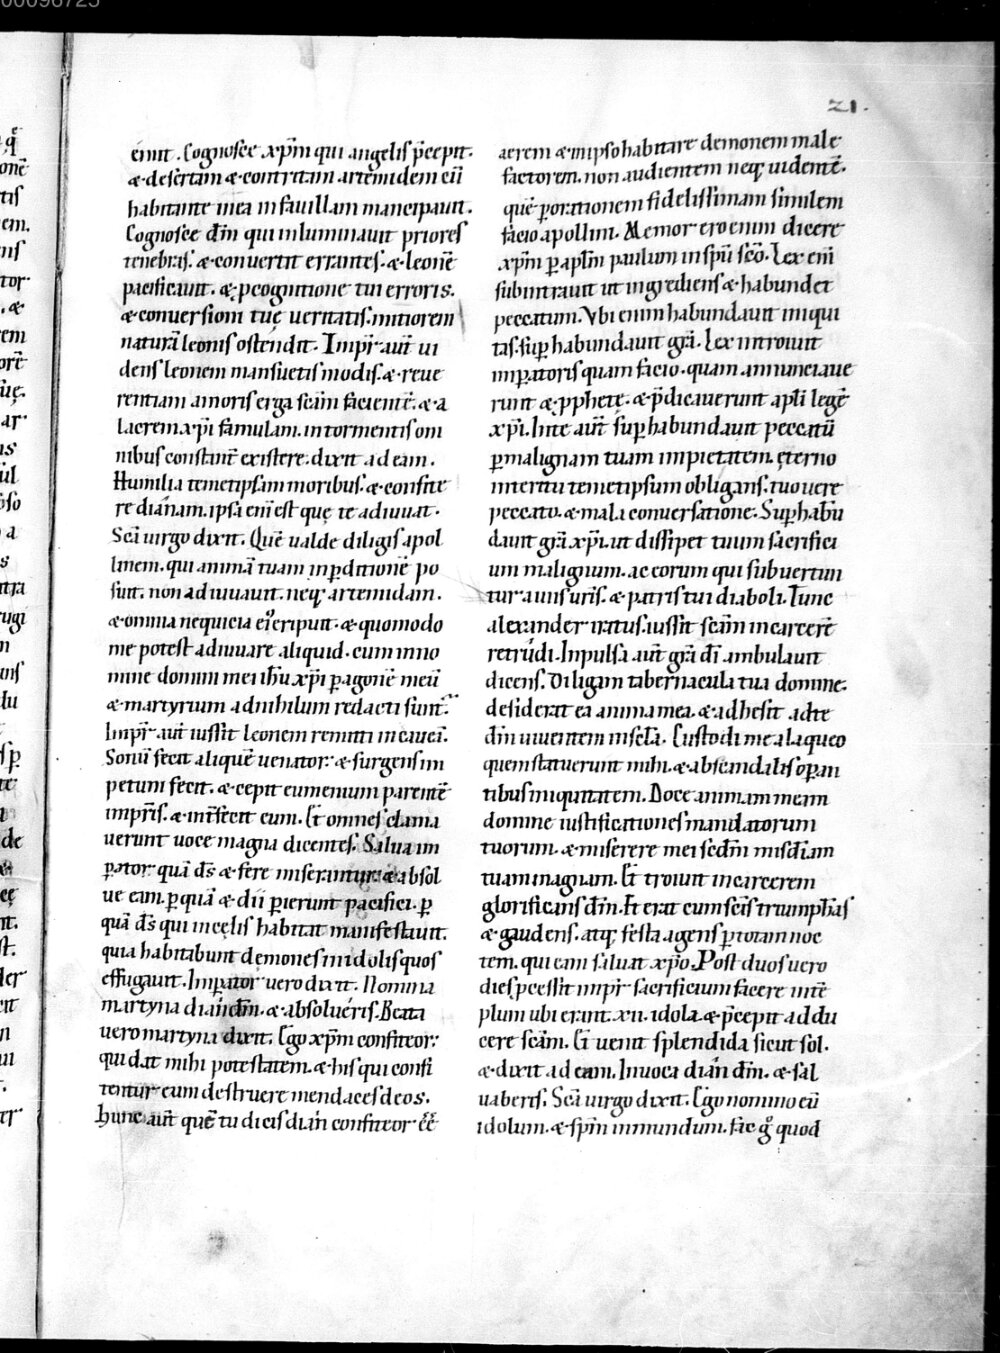 21.
emit. Cognosce xp̄m qui angelis p̄cepit.
& desertam & contritam artemidem cū
habitante in ea in fauillam mancipauit.
Cognosce dm̄ qui inluminauit priores
tenebras. & conuertit errantes. & leonē
pacificauit. & p cognitione tui erroris.
& conuersioni tuę ueritatis. mitiorem
naturā leonis ostendit. Imp̄r aut̄ ui
dens leonem mansuetis modis. & reue
rentiam amoris erga scām facientē. & a
lacrem xp̄i famulam. in tormentis om
nibus constant̄ existere. dixit ad eam.
Humilia temetipsam moribus. & confite
re dianam. ipsa enī est que te adiuuat.
Scā uirgo dixit. Quē ualde diligis apol
linem. qui animā tuam in pditionē po
suit. non adiuuauit. neq; artemidam.
& omnia nequicia ei eripuit. & quomodo
me potest adiuuare aliquid. cum in no
mine domini mei ihu xp̄i p agonē meū
& martyrium ad nihilum redacti sunt.
Imp̄r aut̄ iussit leonem remitti in caueā.
Sonū fecit aliquē uenator. & surgens im
petum fecit. & cepit eumenium parentē
imp̄ris. & int̄fecit eum. Et omnes clama
uerunt uoce magna dicentes. Salua im
pator quā ds̄ & fere miserintur & absol
ue eam. p quā & dii pierunt pacifici. p
quā ds̄ qui in cęlis habitat manifestauit.
quia habitabunt demones in idolis quos
effugauit. Impator uero dixit. Nomina
martyna dianā dm̄. & absolueris. Beata
uero martyna dixit. Ego xp̄m confiteor.
qui dat mihi potestatem. & his qui confi
tentur eum destruere mendaces deos.
Hunc aut̄ quē tu dicis dian̄ confiteor eē
aerem & in ipso habitare demonem male
factorem. non audientem neq; uidentē.
quē p orationem fidelissimam similem
facio apollini. Memor ero enim dicere
xp̄m p aplm̄ paulum in spū scō. Lex enī
subintrauit ut ingrediens & habundet
peccatum. Vbi enim habundauit iniqui
tas. sup habundauit grā. Lex introiuit
impatoris quam facio. quam annunciaue
runt & pphetę. & p̄dicauerunt apl̄i legē
xp̄i. In te aut̄ sup habundauit peccatū
p malignam tuam impietatem. ęterno
interitu temetipsum obligans. tuo uere
peccato. & mala conuersatione. Sup habū
dauit grā xp̄i. ut dissipet tuum sacrifici
um malignum. ac eorum qui subuertun
tur a uns̄ uris̄. & patris tui diaboli. Tunc
alexander iratus. iussit scām in carcerē
retrudi. Inpulsa aut̄ grā dī ambulauit
dicens. Diligam tabernacula tua domine.
desiderat ea anima mea. & adhesit ad te
dm̄ uiuentem in scl̄a. Custodi me a laqueo
quem statuerunt mihi. & ab scandalis opan
tibus iniquitatem. Doce animam meam
domine iustificationes mandatorum
tuorum. & miserere mei scdm̄ misd̄iam
tuam magnam. Et troiuit in carcerem
glorificans dm̄. Et erat cum scīs triumphās
& gaudens. atq; festa agens p totam noc
tem. qui eam saluat xp̄o. Post duos uero
dies p̄cessit imp̄r sacrificium facere in tē
plum ubi erant. xii. idola. & p̄cepit addu
cere scām. Et uenit splendida sicut sol.
& dixit ad eam. Inuoca dian̄ dm̄. & sal
uaberis. Scā uirgo dixit. Ego nomino eū
idolum. & spm̄ inmundum. fac g° quod